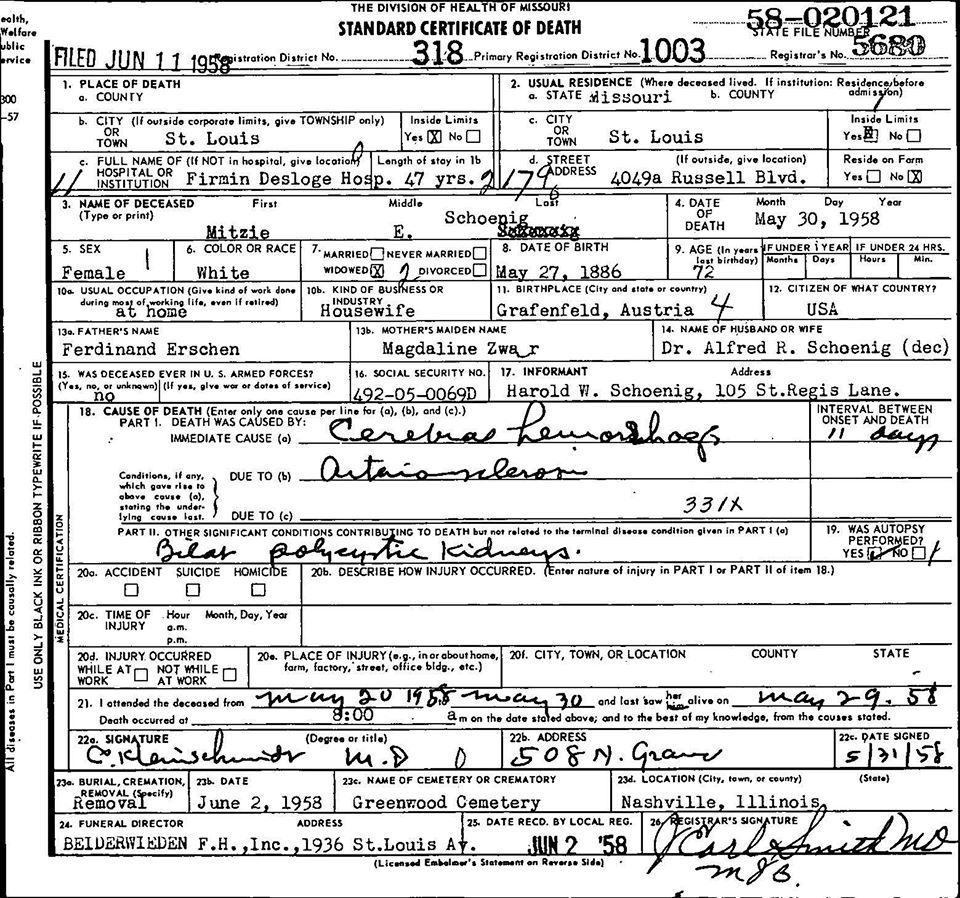 THE DIVISION OF HEALTH OF MISSOURI
STANDARD CERTIFICATE OF DEATH
58-020121
STATE FILE NUMBER
ealth,
Welfare
ublic
ervice
FILED JUN 11 1958 Registration District No. 318 Primary Registration District No. 1003 Registrar's No. 5680
300
-57
1. PLACE OF DEATH
a. COUNTY
2. USUAL RESIDENCE (Where deceased lived. If institution: Residence before admission)
a. STATE Missouri b. COUNTY
b. CITY (If outside corporate limits, give TOWNSHIP only) OR TOWN St. Louis
Inside Limits Yes [X] No [ ]
c. CITY OR TOWN St. Louis
Inside Limits Yes [X] No [ ]
c. FULL NAME OF (If NOT in hospital, give location) HOSPITAL OR INSTITUTION Firmin Desloge Hosp.
Length of stay in 1b 47 yrs.
11 2179
d. STREET ADDRESS (If outside, give location) 4049a Russell Blvd.
Reside on Farm Yes [ ] No [X]
3. NAME OF DECEASED (Type or print) First Middle Last
Mitzie E. Schoenig
4. DATE OF DEATH Month Day Year
May 30, 1958
5. SEX
Female
6. COLOR OR RACE
White
7. MARRIED [ ] NEVER MARRIED [ ]
WIDOWED [X] DIVORCED [ ]
8. DATE OF BIRTH
May 27, 1886
9. AGE (In years last birthday)
72
IF UNDER 1 YEAR Months Days
IF UNDER 24 HRS. Hours Min.
10a. USUAL OCCUPATION (Give kind of work done during most of working life, even if retired)
at home
10b. KIND OF BUSINESS OR INDUSTRY
Housewife
11. BIRTHPLACE (City and state or country)
Grafenfeld, Austria 4
12. CITIZEN OF WHAT COUNTRY?
USA
13a. FATHER'S NAME
Ferdinand Erschen
13b. MOTHER'S MAIDEN NAME
Magdaline Zwa r
14. NAME OF HUSBAND OR WIFE
Dr. Alfred R. Schoenig (dec)
15. WAS DECEASED EVER IN U. S. ARMED FORCES?
(Yes, no, or unknown) (If yes, give war or dates of service)
no
16. SOCIAL SECURITY NO.
492-05-0069D
17. INFORMANT Address
Harold W. Schoenig, 105 St.Regis Lane.
18. CAUSE OF DEATH (Enter only one cause per line for (a), (b), and (c).)
PART I. DEATH WAS CAUSED BY:
IMMEDIATE CAUSE (a) Cerebral hemorrhage
INTERVAL BETWEEN ONSET AND DEATH
11 days
Conditions, if any, which gave rise to above cause (a), stating the underlying cause last.
DUE TO (b) Arteriosclerosis
331X
DUE TO (c)
PART II. OTHER SIGNIFICANT CONDITIONS CONTRIBUTING TO DEATH but not related to the terminal disease condition given in PART I (a)
Bilat polycystic Kidneys.
19. WAS AUTOPSY PERFORMED?
YES [✓] NO [ ]
20a. ACCIDENT SUICIDE HOMICIDE
20b. DESCRIBE HOW INJURY OCCURRED. (Enter nature of injury in PART I or PART II of item 18.)
20c. TIME OF INJURY Hour Month, Day, Year
a.m.
p.m.
20d. INJURY OCCURRED
WHILE AT WORK [ ] NOT WHILE AT WORK [ ]
20e. PLACE OF INJURY (e.g., in or about home, farm, factory, street, office bldg., etc.)
20f. CITY, TOWN, OR LOCATION COUNTY STATE
21. I attended the deceased from May 20 1958 May 30 and last saw her him alive on May 29. 58
Death occurred at 8:00 a m on the date stated above; and to the best of my knowledge, from the causes stated.
22a. SIGNATURE (Degree or title)
C. Kleinschmidt M.D
22b. ADDRESS
508 N. Grand
22c. DATE SIGNED
5/31/58
23a. BURIAL, CREMATION, REMOVAL (Specify)
Removal
23b. DATE
June 2, 1958
23c. NAME OF CEMETERY OR CREMATORY
Greenwood Cemetery
23d. LOCATION (City, town, or county) (State)
Nashville, Illinois,
24. FUNERAL DIRECTOR ADDRESS
BEIDERWIEDEN F.H.,Inc.,1936 St.Louis Av.
25. DATE RECD. BY LOCAL REG.
JUN 2 '58
26. REGISTRAR'S SIGNATURE
J Carl Smith MD
MJB.
(Licensed Embalmer's Statement on Reverse Side)
USE ONLY BLACK INK OR RIBBON TYPEWRITE IF POSSIBLE
All diseases in Part I must be causally related.
MEDICAL CERTIFICATION